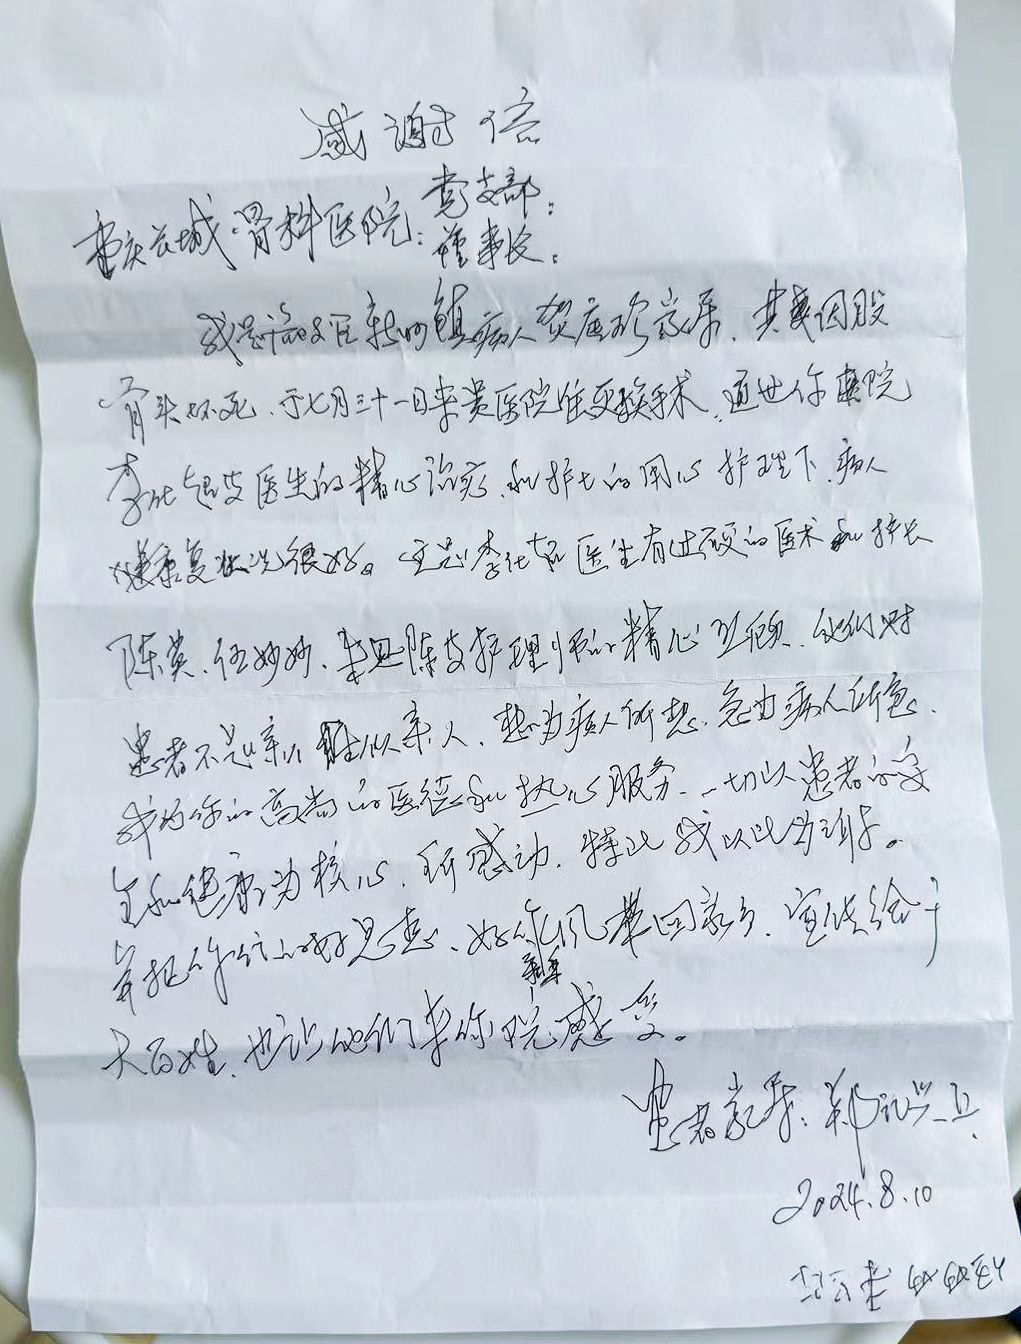 感谢信
重庆长城骨科医院：党支部：
董事长：
我是 镇病人贺 家属，其 因股
骨头坏死，于七月三十一日来贵医院住 更换手术，通过你医院
李 医生的精心治疗，和护士的用心护理下，病人
健康复状况很好。 是李 医生有过硬的医术和护长
陈 、任妙妙、 护理师的精心 ，他们对
患者不是亲人胜似亲人，想为病人所想，急为病人所急，
我为你们高尚的医德和热心服务，一切以患者的安
全和健康为核心，所感动，特此我以此为 。
并把你们的好思想、好作风带回家乡，宣传给广
大百姓，也让他们来你院亲身感受。
患者家属：郑
2024.8.10